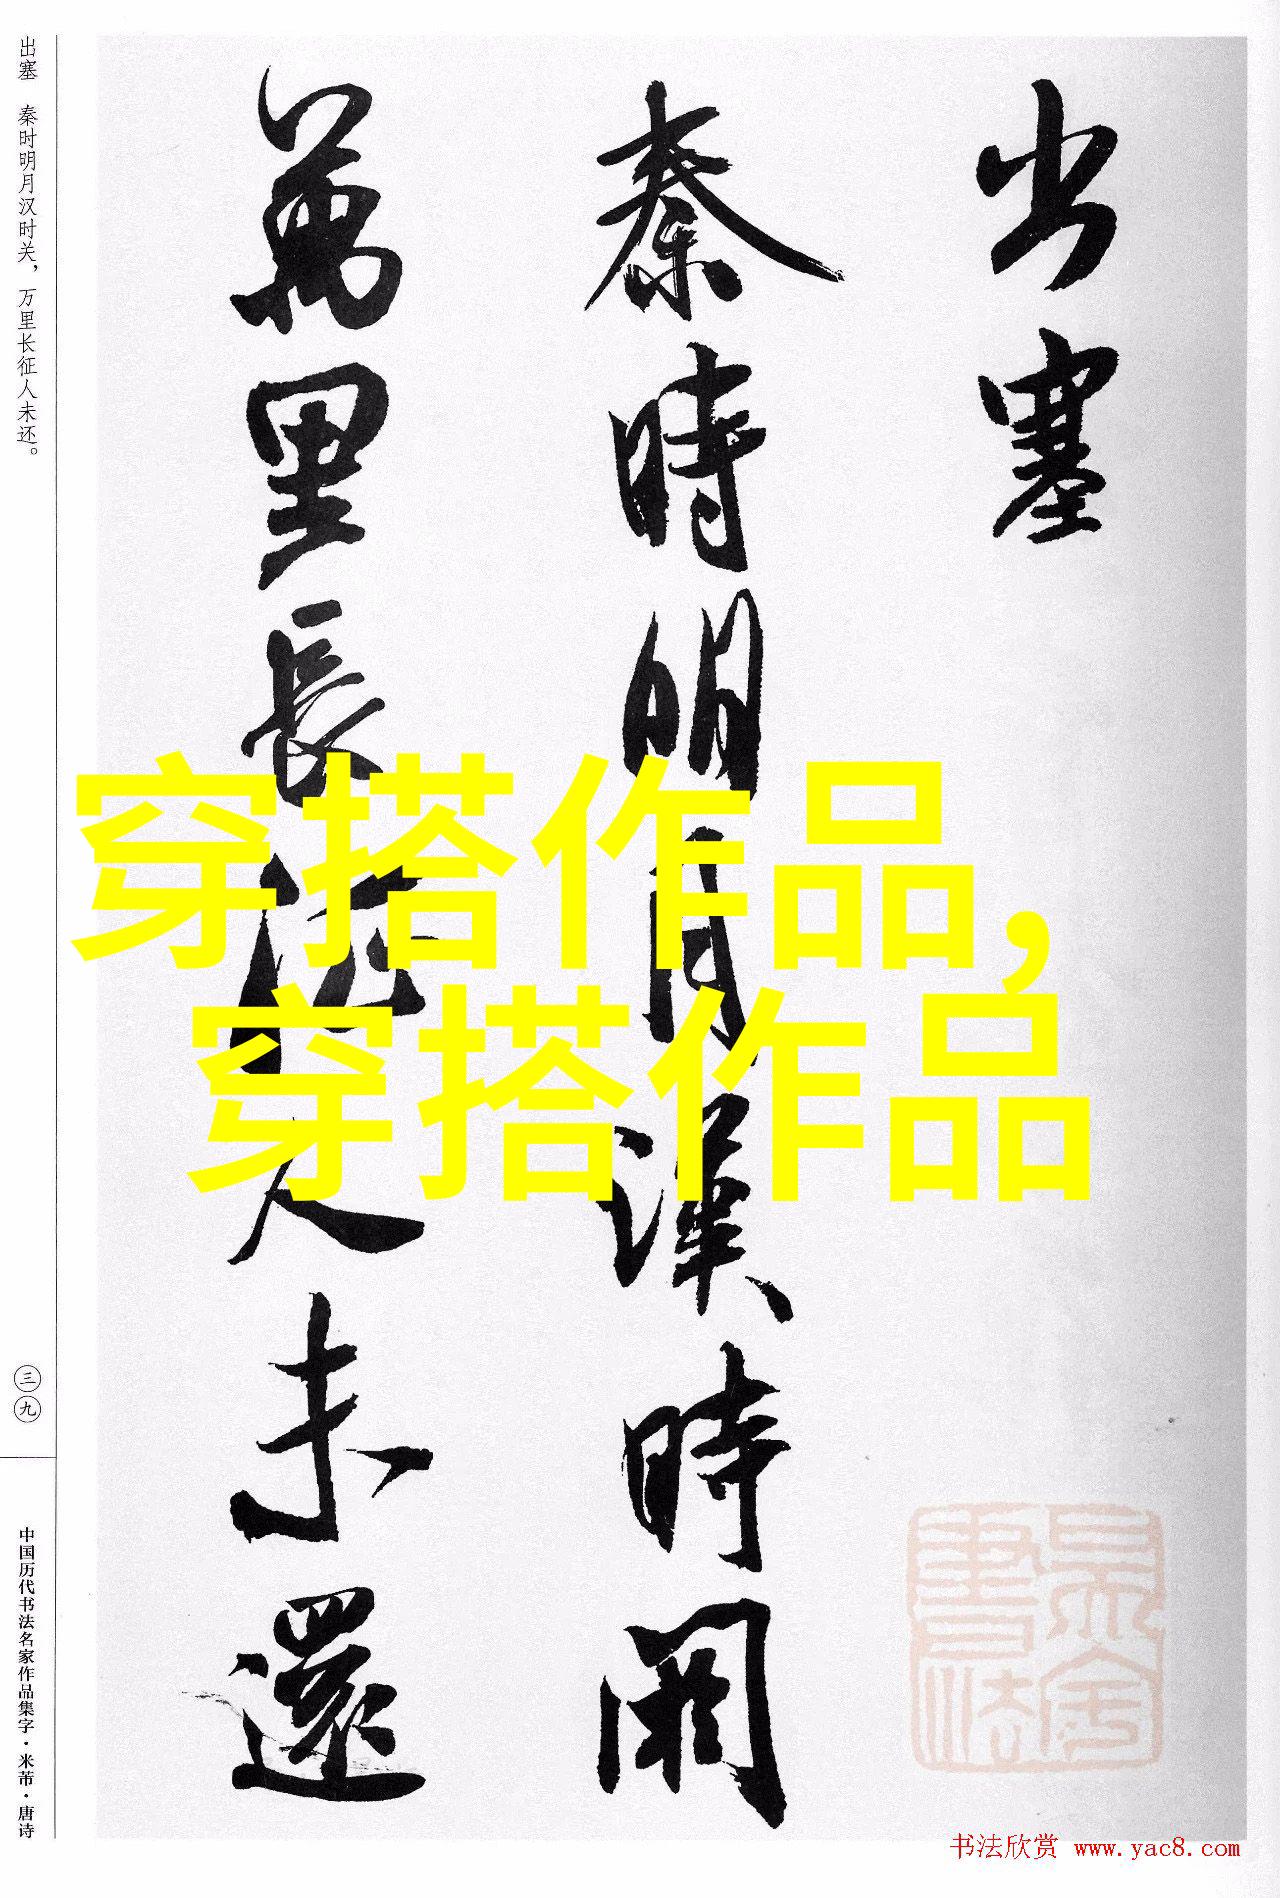 出塞
秦時明月漢時関
萬里長征人未還
出塞 秦时明月汉时关，万里长征人未还。
三九
中国历代书法名家作品集字·米芾·唐诗
穿搭作品,
穿搭作品
书法欣赏 www.yac8.com